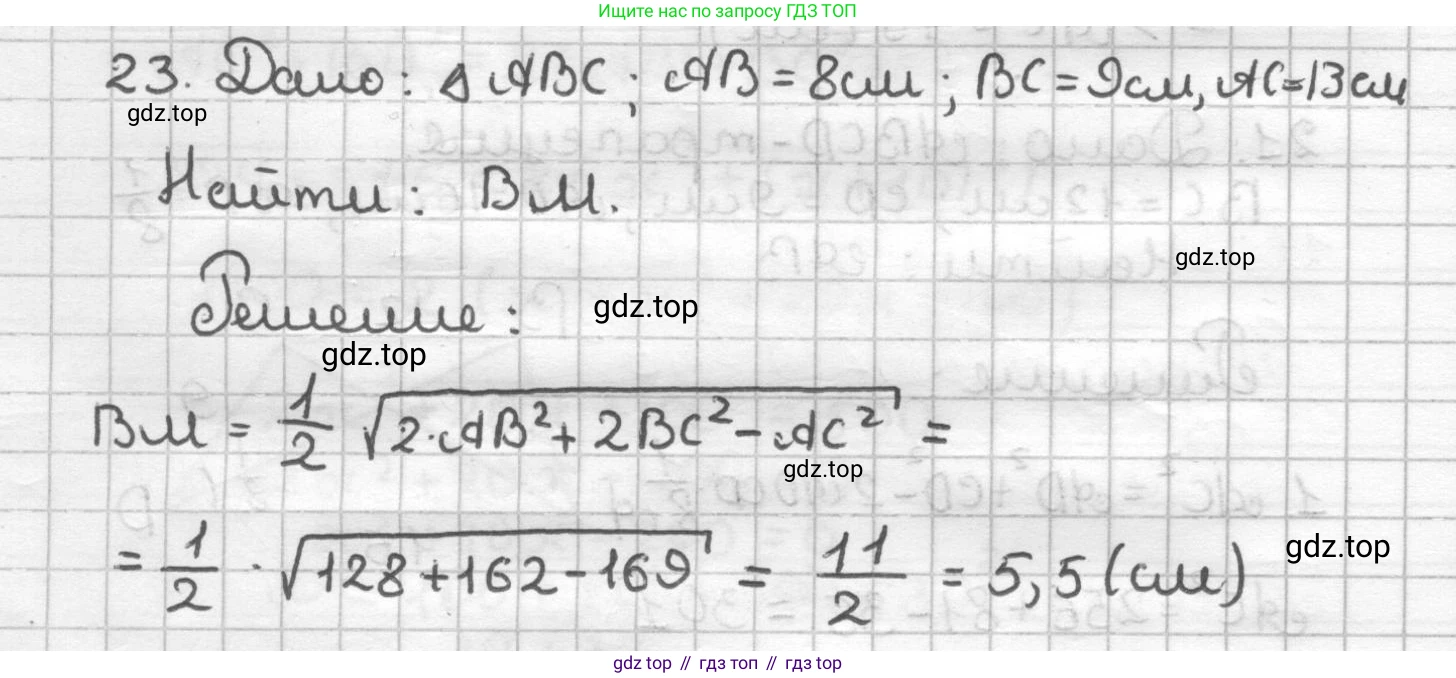 Ищите нас по запросу ГДЗ ТОП
23. Дано: Δ ABC; AB = 8см; BC = 9см, AC = 13 см
gdz.top
Найти: BM.
gdz.top
Решение:
gdz.top
gdz.top
BM = 1/2 √(2·AB² + 2BC² - AC²) =
gdz.top
= 1/2 · √(128 + 162 - 169) = 11/2 = 5,5 (см)
gdz.top
gdz top // гдз топ // гдз top